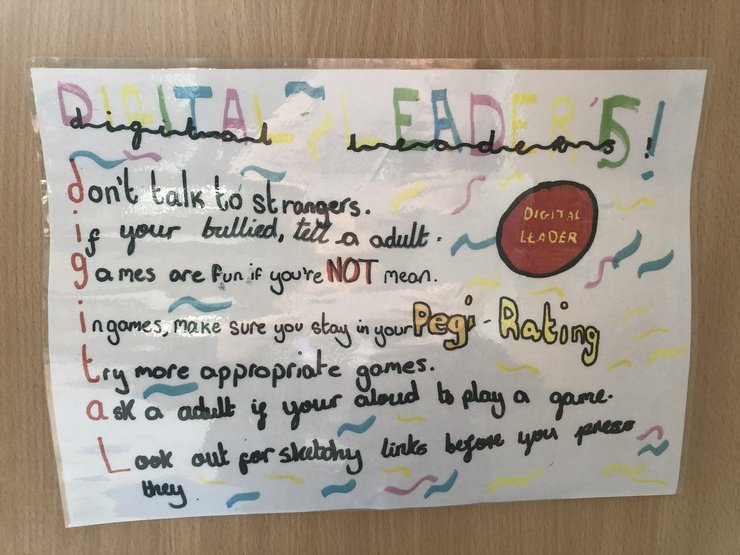 DIGITAL LEADER'S!
digital leaders!
don't talk to strangers.
DIGITAL
LEADER
if your bullied, tell a adult.
games are fun if you're NOT mean.
in games, make sure you stay in your Pegi-Rating
try more appropriate games.
ask a adult if your aloud to play a game.
Look out for sketchy links before you press
they